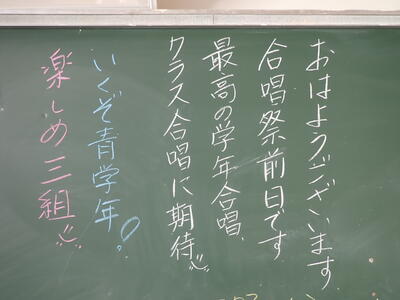 おはようございます
合唱祭前日です
最高の学年合唱、
クラス合唱に期待
いくぞ青学年!
楽しめ三組